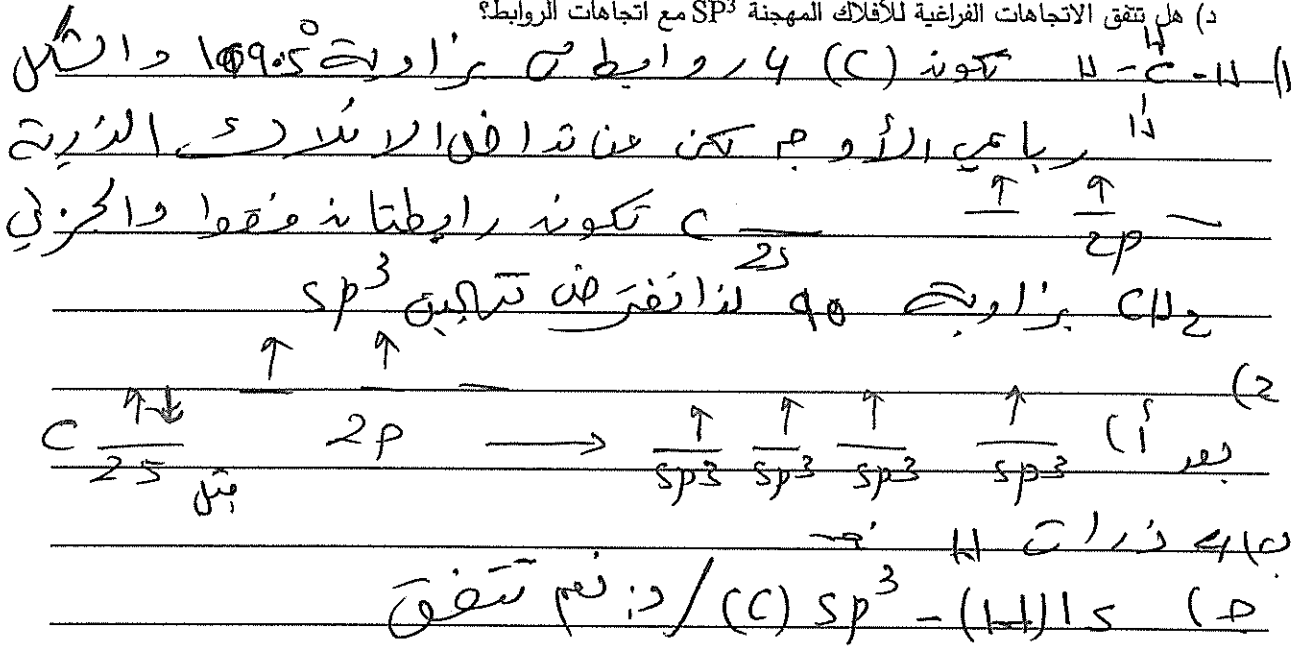 د) هل تتفق الاتجاهات الفراغية للأفلاك المهجنة SP³ مع اتجاهات الروابط؟
H
1) H - C - H تكون (C) 4 روابط σ بزاوية 109.5° والشكل
H
رباعي الأوجه لكن عند تداخل الافلاك الذرية
↑ ↑
C 2s 2p تكون رابطتان فقط والجزئي
CH2 بزاوية 90 لذا نفترض تهجين sp³
2) ↑ ↑
أ) بعد ↑ sp3 ↑ sp3 ↑ sp3 ↑ sp3 ⟶ 2p ↑↓ 2s C
قبل
ب) 4 ذرات H
ج) 1s (H) - sp³ (C) / د: نعم تتفق